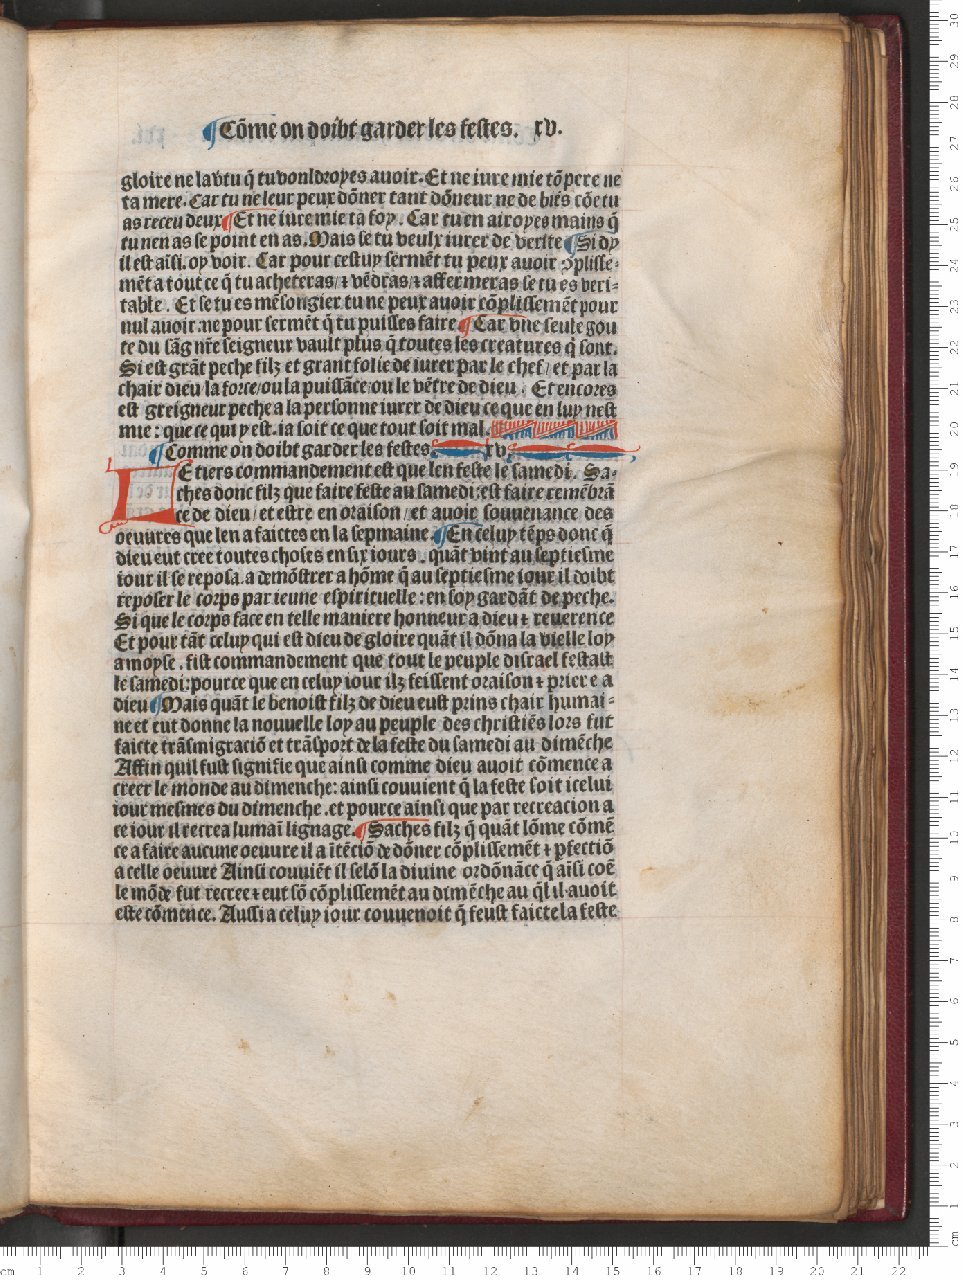 ¶Cõme on doibt garder les festes. xv.
gloire ne la vtu q̃ tu vonldroyes auoir. Et ne iure mie tõ pere ne
ta mere. Car tu ne leur peux dõner tant dõneur ne de biẽs cõe tu
as receu deux ¶Et ne iure mie ta foy. Car tu en airoyes mains q̃
tu nen as se point en as. Mais se tu veulx iurer de verite ¶Si dy
il est aĩsi. oy voir. Car pour cestuy sermẽt tu peux auoir ꝯplisse⸗
mẽt a tout ce q̃ tu acheteras/ ⁊ vẽdras/ ⁊ affermeras se tu es veri⸗
table. Et se tu es mẽsongier tu ne peux auoir cõplissemẽt pour
nul auoir: ne pour sermẽt q̃ tu puisses faire ¶Car vne seule gou
te du sãg nr̃e seigneur vault plus q̃ toutes les creatures q̃ sont.
Si est grãt peche filz et grant folie de iurer par le chef/ et par la
chair dieu la force/ ou la puissãce/ ou le vẽtre de dieu. Et encores
est greigneur peche a la personne iurer de dieu ce que en luy nest
mie: que ce qui y est. ia soit ce que tout soit mal.
¶Comme on doibt garder les festes xv
LE tiers commandement est que len feste le samedi. Sa⸗
ches donc filz que faire feste au samedi: est faire remẽbrã
ce de dieu/ et estre en oraison/ et auoir souuenance des
oeuures que len a faictes en la sepmaine. ¶En celuy tẽps donc q̃
dieu eut cree toutes choses en six iours. quãt vint au septiesme
iour il se reposa. a demõstrer a hõme q̃ au septiesme iour il doibt
reposer le corps par ieune espirituelle: en soy gardãt de peche.
Si que le corps face en telle maniere honneur a dieu ⁊ reuerence
Et pour tãt celuy qui est dieu de gloire quãt il dõna la vielle loy
a moyse. fist commandement que tout le peuple disrael festast
le samedi: pource que en celuy iour ilz feissent oraison ⁊ priere a
dieu ¶Mais quãt le benoist filz de dieu eust prins chair humai⸗
ne et eut donne la nouuelle loy au peuple des christiẽs lors fut
faicte trãsmigraciõ et trãsport de la feste du samedi au dimẽche
Affin quil fust signifie que ainsi comme dieu auoit cõmence a
creer le monde au dimenche: ainsi couuient q̃ la feste soit icelui
iour mesmes du dimenche. et pource ainsi que par recreacion a
ce iour il recrea lumaĩ lignage. ¶Saches filz q̃ quãt lõme cõmẽ
ce a faire aucune oeuure il a ĩtẽciõ de dõner cõplissemẽt ⁊ pfectiõ
a celle oeuure Ainsi couuiẽt il selõ la diuine ordõnãce q̃ aĩsi coẽ
le mõde fut recree ⁊ eut sõ cõplissemẽt au dimẽche au q̃l il auoit
este cõmẽce. Aussi a celuy iour couuenoit q̃ feust faicte la feste